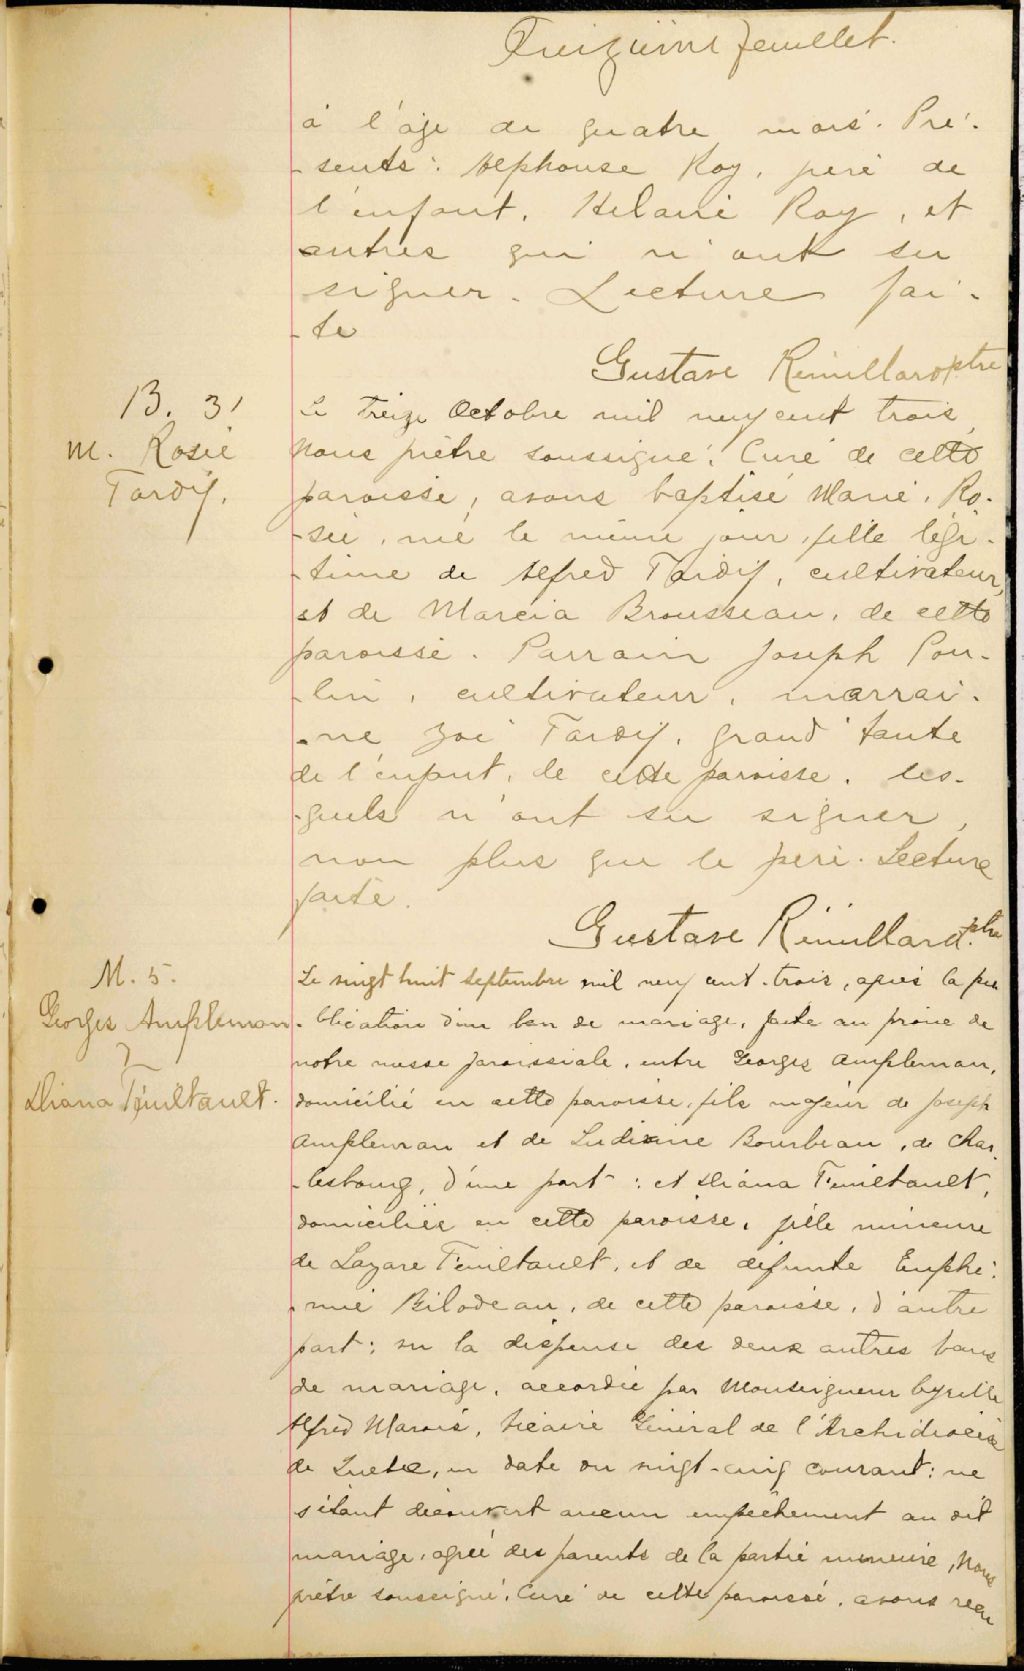 Treizième feuillet.
à l'âge de quatre mois. Pré-
-sents: Alphonse Roy, père de
l'enfant, Hilaire Roy, et
autres qui n'ont su
signer. Lecture fai-
-te
Gustave Rémillard ptre
B. 31
M. Rosie
Tardif.
Le treize Octobre mil neuf cent trois,
Nous prêtre soussigné, Curé de cette
paroisse, avons baptisé Marie, Ro-
-sie, née le même jour, fille légi-
-time de Alfred Tardif, cultivateur,
et de Marcia Brousseau, de cette
paroisse. Parrain Joseph Pou-
-lin, cultivateur, marrai-
-ne Zoé Tardif, grand'tante
de l'enfant, de cette paroisse, les-
-quels n'ont su signer,
non plus que le père. Lecture
faite.
Gustave Rémillard, ptre
M. 5.
Georges Ampleman
&
Diana Feuiltault.
Le vingt huit septembre mil neuf cent-trois, après la pu
-blication d'un ban de mariage, faite au prône de
notre messe paroissiale, entre Georges Ampleman,
domicilié en cette paroisse, fils majeur de Joseph
Ampleman et de Ludivine Bourbeau, de Char-
-lesbourg, d'une part: et Diana Feuiltault,
domiciliée en cette paroisse, fille mineure
de Lazare Feuiltault, et de défunte Euphé-
-mie Bilodeau, de cette paroisse, d'autre
part; vu la dispense des deux autres bans
de mariage, accordée par Monseigneur Cyrille
Alfred Marois, Vicaire Général de l'Archidiocèse
de Québec, en date du vingt-cinq courant: ne
s'étant découvert aucun empêchement au dit
mariage, agréé des parents de la partie mineure, Nous
prêtre sousigné, Curé de cette paroisse, avons reçu